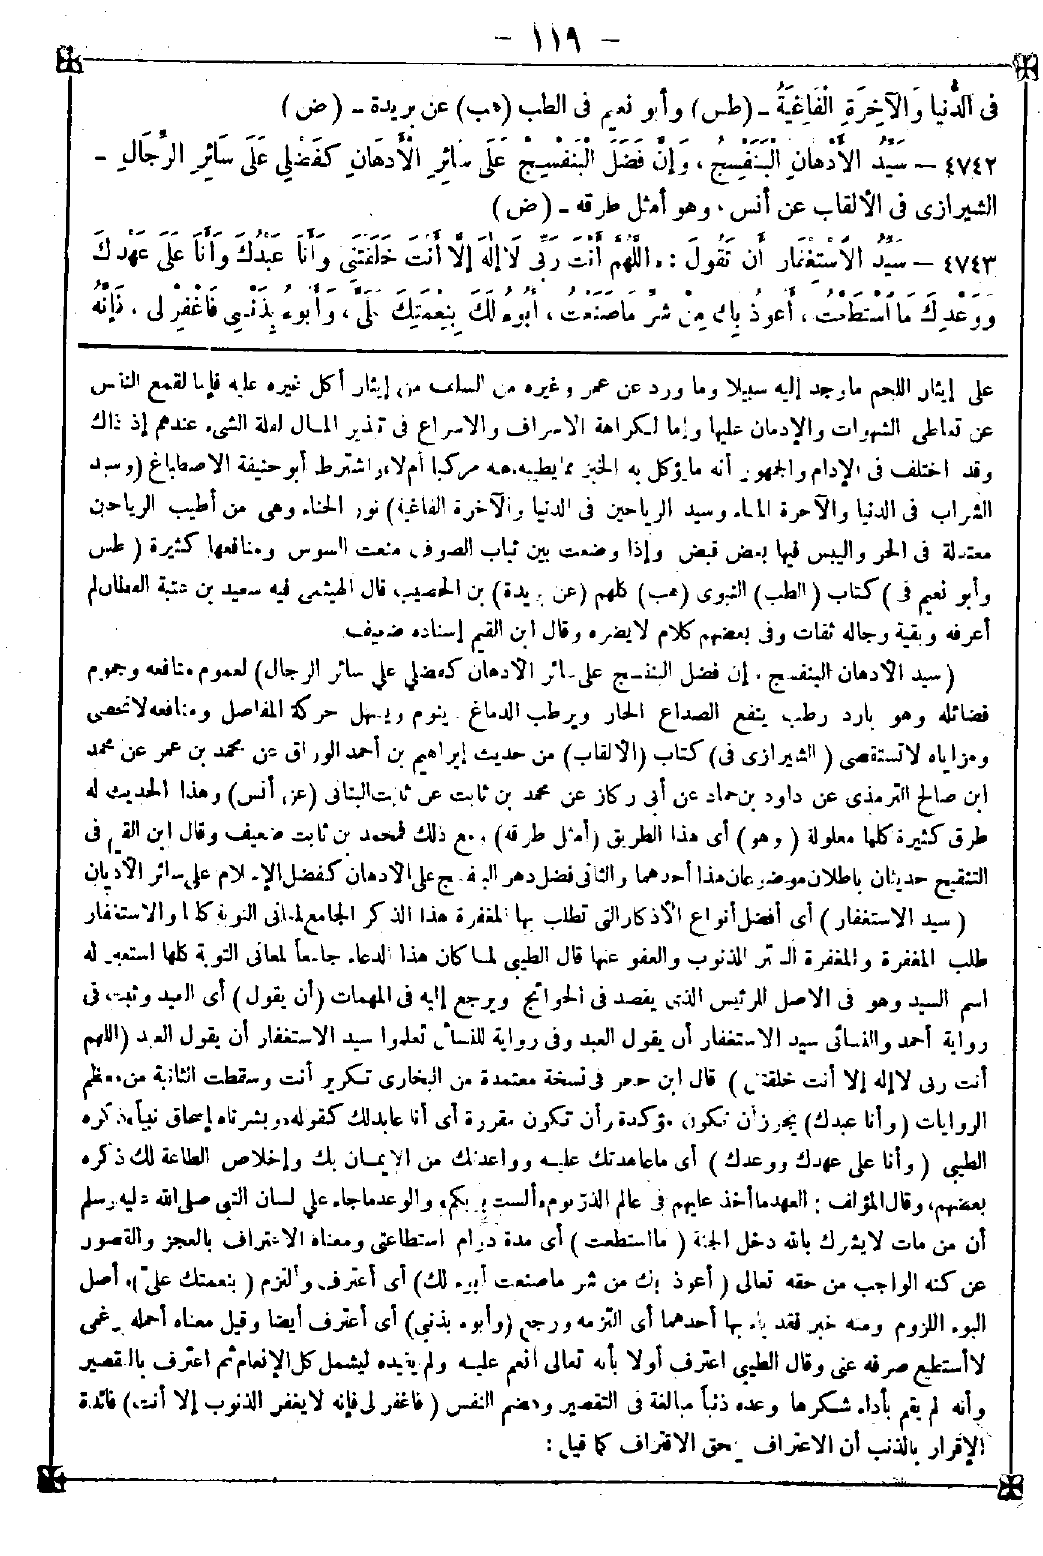 - ١١٩ -
فى الدُّنيا وَالآخِرَةِ الْفَاغِيَةُ ـ (طس) وأبو نعيم فى الطب (هب) عن بريدة ـ (ض)
٤٧٤٢ ـ سَيِّدُ الأَدْهانِ الْبَنَفْسِجُ ، وَإِنَّ فَضْلَ الْبَنَفْسِجْ عَلَى سَائِرِ الأَدْهَانِ كَفَضْلِي عَلَى سَائِرِ الرِّجَالِ ـ
الشيرازى فى الألقاب عن أنس ، وهو أمثل طرقه ـ (ض)
٤٧٤٣ ـ سَيِّدُ الاَسْتِغْفَار أَن تَقُولَ : « اللَّهُمَّ أَنْتَ رَبِّى لَا إِلَهَ إِلَّا أَنْتَ خَلَقْتَنِي وَأَنَا عَبْدُكَ وَأَنَا عَلَى عَهْدِكَ
وَوَعْدِكَ مَا اسْتَطَعْتُ ، أَعُوذُ بِكَ مِنْ شَرِّ مَا صَنَعْتُ ، أَبُوءُ لَكَ بِنِعْمَتِكَ عَلَىَّ ، وَأَبُوءُ بِذَنْبِي فَاغْفِرْ لِى ، فَإِنَّهُ
على إيثار اللحم ما وجد إليه سبيلا وما ورد عن عمر وغيره من السلف من إيثار أكل غيره عليه فإما لقمع الناس
عن تعاطى الشهوات والإدمان عليها وإما لكراهة الاسراف والاسراع فى تبذير المال لقلة الشىء عندهم إذ ذاك
وقد اختلف فى الإدام والجمهور أنه ما يؤكل به الخبز مما يطيبه سواء مركبا أم لا واشترط أبو حنيفة الاصطباغ (وسيد
الشراب فى الدنيا والآخرة الماء وسيد الرياحين فى الدنيا والآخرة الفاغية) نور الحناء وهى من أطيب الرياحين
معتدلة فى الحر واليبس فيها بعض قبض وإذا وضعت بين ثياب الصوف منعت السوس ومنافعها كثيرة (طس
وأبو نعيم فى) كتاب (الطب) النبوى (هب) كلهم (عن بريدة) بن الحصيب قال الهيثمى فيه سعيد بن عتبة القطان لم
أعرفه وبقية رجاله ثقات وفى بعضهم كلام لا يضره وقال ابن القيم إسناده ضعيف
(سيد الأدهان البنفسج ، إن فضل البنفسج على سائر الأدهان كفضلي علي سائر الرجال) لعموم منافعه وجموم
فضائله وهو بارد رطب ينفع الصداع الحار ويرطب الدماغ وينوم ويسهل حركة المفاصل ومنافعه لا تحصى
ومزاياه لا تستقصى (الشيرازى فى) كتاب (الألقاب) من حديث إبراهيم بن أحمد الوراق عن محمد بن عمر عن محمد
ابن صالح الترمذى عن داود بن حماد عن أبى ركاز عن محمد بن ثابت عن ثابت البنانى (عن أنس) وهذا الحديث له
طرق كثيرة كلها معلولة (وهو) أى هذا الطريق (أمثل طرقه) ومع ذلك فمحمد بن ثابت ضعيف وقال ابن القيم فى
التنقيح حديثان باطلان موضوعان هذا أحدهما والثانى فضل دهن البنفسج على الأدهان كفضل الإسلام على سائر الأديان
(سيد الاستغفار) أى أفضل أنواع الأذكار التى تطلب بها المغفرة هذا الذكر الجامع لمعانى التوبة كلها والاستغفار
طلب المغفرة والمغفرة الستر للذنوب والعفو عنها قال الطيبى لما كان هذا الدعاء جامعاً لمعانى التوبة كلها استعير له
اسم السيد وهو فى الاصل للرئيس الذى يقصد فى الحوائج ويرجع إليه فى المهمات (أن يقول) أى العبد وثبت فى
رواية أحمد والنسائى سيد الاستغفار أن يقول العبد وفى رواية للنسائى تعلموا سيد الاستغفار أن يقول العبد (اللهم
أنت ربى لا إله إلا أنت خلقتنى) قال ابن حجر فى نسخة معتمدة من البخارى تكرير أنت وسقطت الثانية من معظم
الروايات (وأنا عبدك) يجوز أن تكون مؤكدة وأن تكون مقررة أى أنا عابد لك كقوله وبشرناه بإسحاق نبياً ذكره
الطيبى (وأنا على عهدك ووعدك) أى ما عاهدتك عليه وواعدتك من الإيمان بك وإخلاص الطاعة لك ذكره
بعضهم، وقال المؤلف : العهد ما أخذ عليهم فى عالم الذر يوم ألست بربكم، والوعد ما جاء علي لسان النبى صلى الله عليه وسلم
أن من مات لا يشرك بالله دخل الجنة (ما استطعت) أى مدة دوام استطاعتى ومعناه الاعتراف بالعجز والقصور
عن كنه الواجب من حقه تعالى (أعوذ بك من شر ما صنعت أبوء لك) أى أعترف وألتزم (بنعمتك علىّ) وأصل
البوء اللزوم ومنه خبر فقد باء بها أحدهما أى التزمه ورجع (وأبوء بذنبى) أى أعترف أيضا وقيل معناه أحمله برغمى
لا أستطيع صرفه عنى وقال الطيبى اعترف أولا بأنه تعالى أنعم عليه ولم يقيده ليشمل كل الإنعام ثم اعترف بالتقصير
وأنه لم يقم بأداء شكرها وعده ذنباً مبالغة فى التقصير وهضم النفس (فاغفر لى فإنه لا يغفر الذنوب إلا أنت) فائدة
الإقرار بالذنب أن الاعتراف يمحق الاقتراف كما قيل :